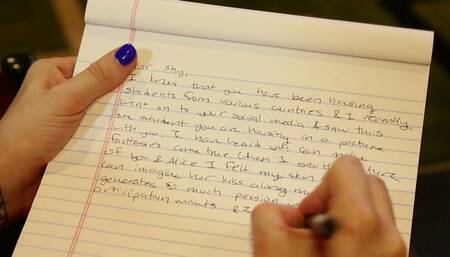 Dear Shy,
I know that you have been housing
students from various countries & I recently
went on to your social media & saw this
one student you are housing in a picture
with you. I have heard wit can make
fantasies come true. When I saw the picture
of you & Alice I felt my skin.
can imagine her kiss along my
generates so much passion
anticipation mounts &